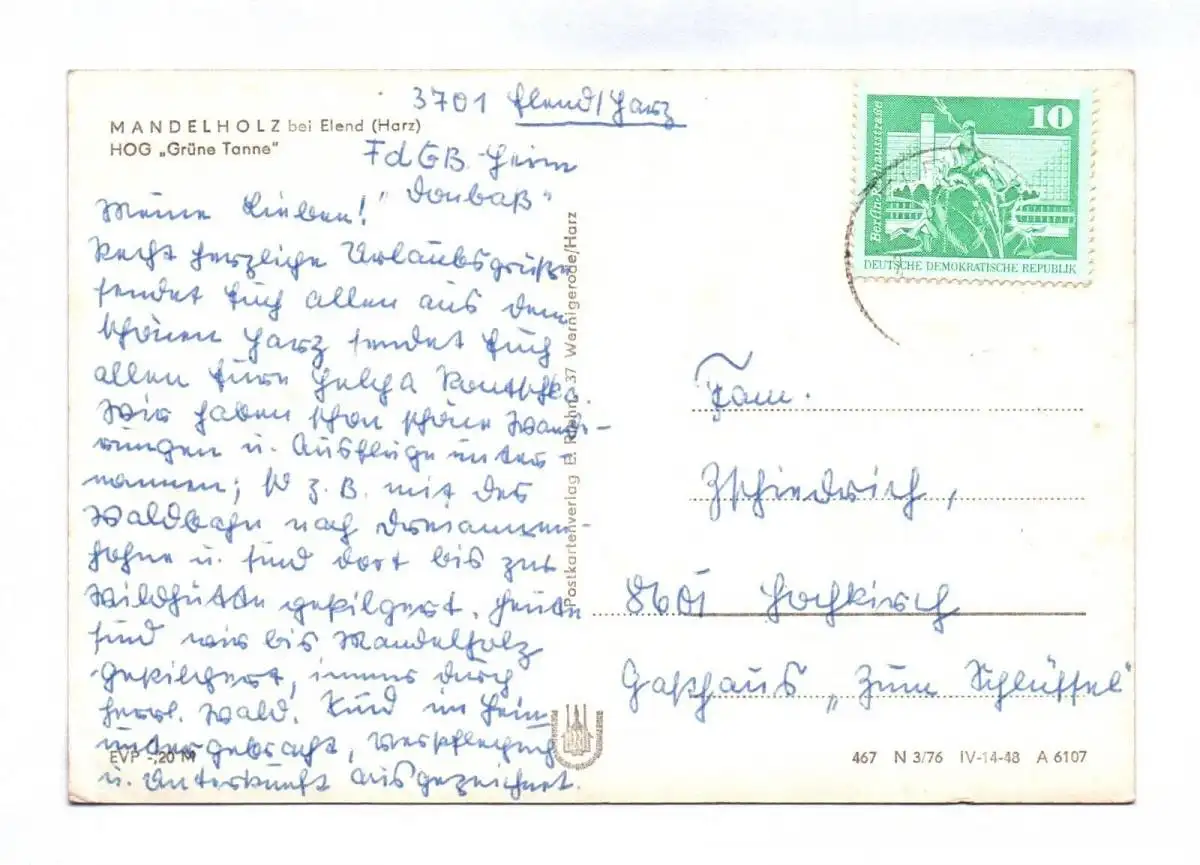 3701 Elend/Harz
MANDELHOLZ bei Elend (Harz)
HOG „Grüne Tanne"
FdGB.-Heim
"Donbaß"
Meine Lieben!
Recht herzliche Urlaubsgrüße
sendet Euch allen aus dem
schönen Harz sendet Euch
allen Eure Helga
Wir haben schon schöne Wande-
rungen u. Ausflüge unter-
nommen; z. B. mit der
Waldbahn nach Dreiannen-
hohne u. sind dort bis zur
Wildhütte gepilgert. Heute
sind wir bis Mandelholz
gepilgert, immer durch
herrl. Wald. Sind im Heim
untergebracht, Verpflegung
u. Unterkunft ausgezeichnet.
EVP -,20 M
Postkartenverlag E. Riehn, 37 Wernigerode/Harz
10
Berlin-Rathausstraße
DEUTSCHE DEMOKRATISCHE REPUBLIK
Fam.
Zschiedrich,
8601 Hochkirch
Gasthaus „Zum Schlüssel"
467 N 3/76 IV-14-48 A 6107